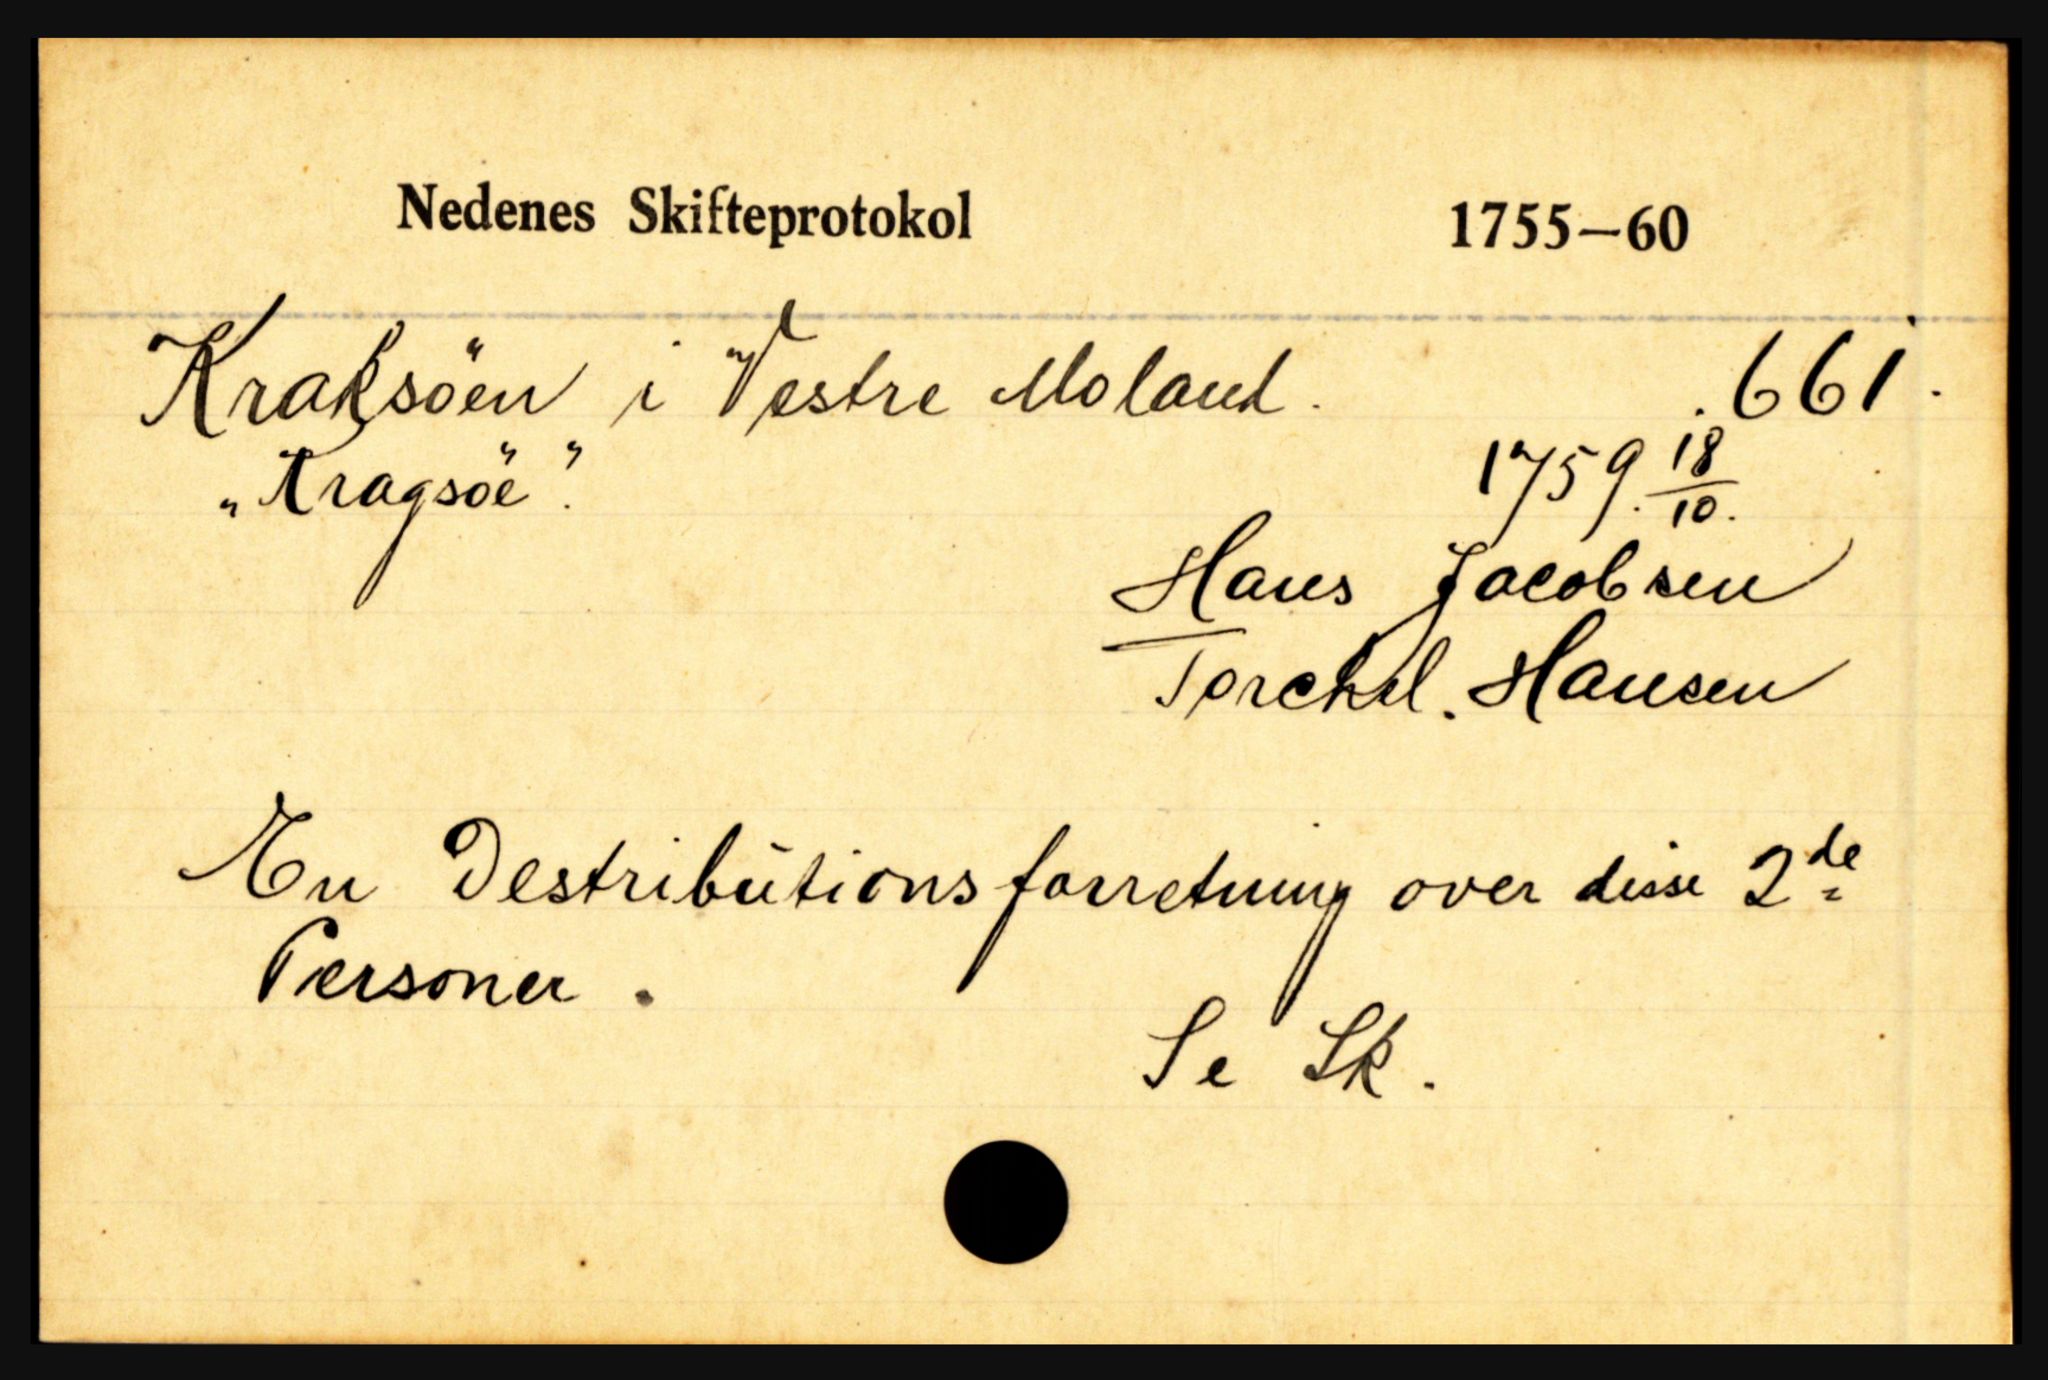 Nedenes Skifteprotokol 1755—60
Kraksöen i Vestre Moland. .661.
„Kragsöe". 1759. 18/10.
Hans Jacobsen
Torchel. Hansen
En Destributionsforretning over disse 2de
Personer.
Se Sk.